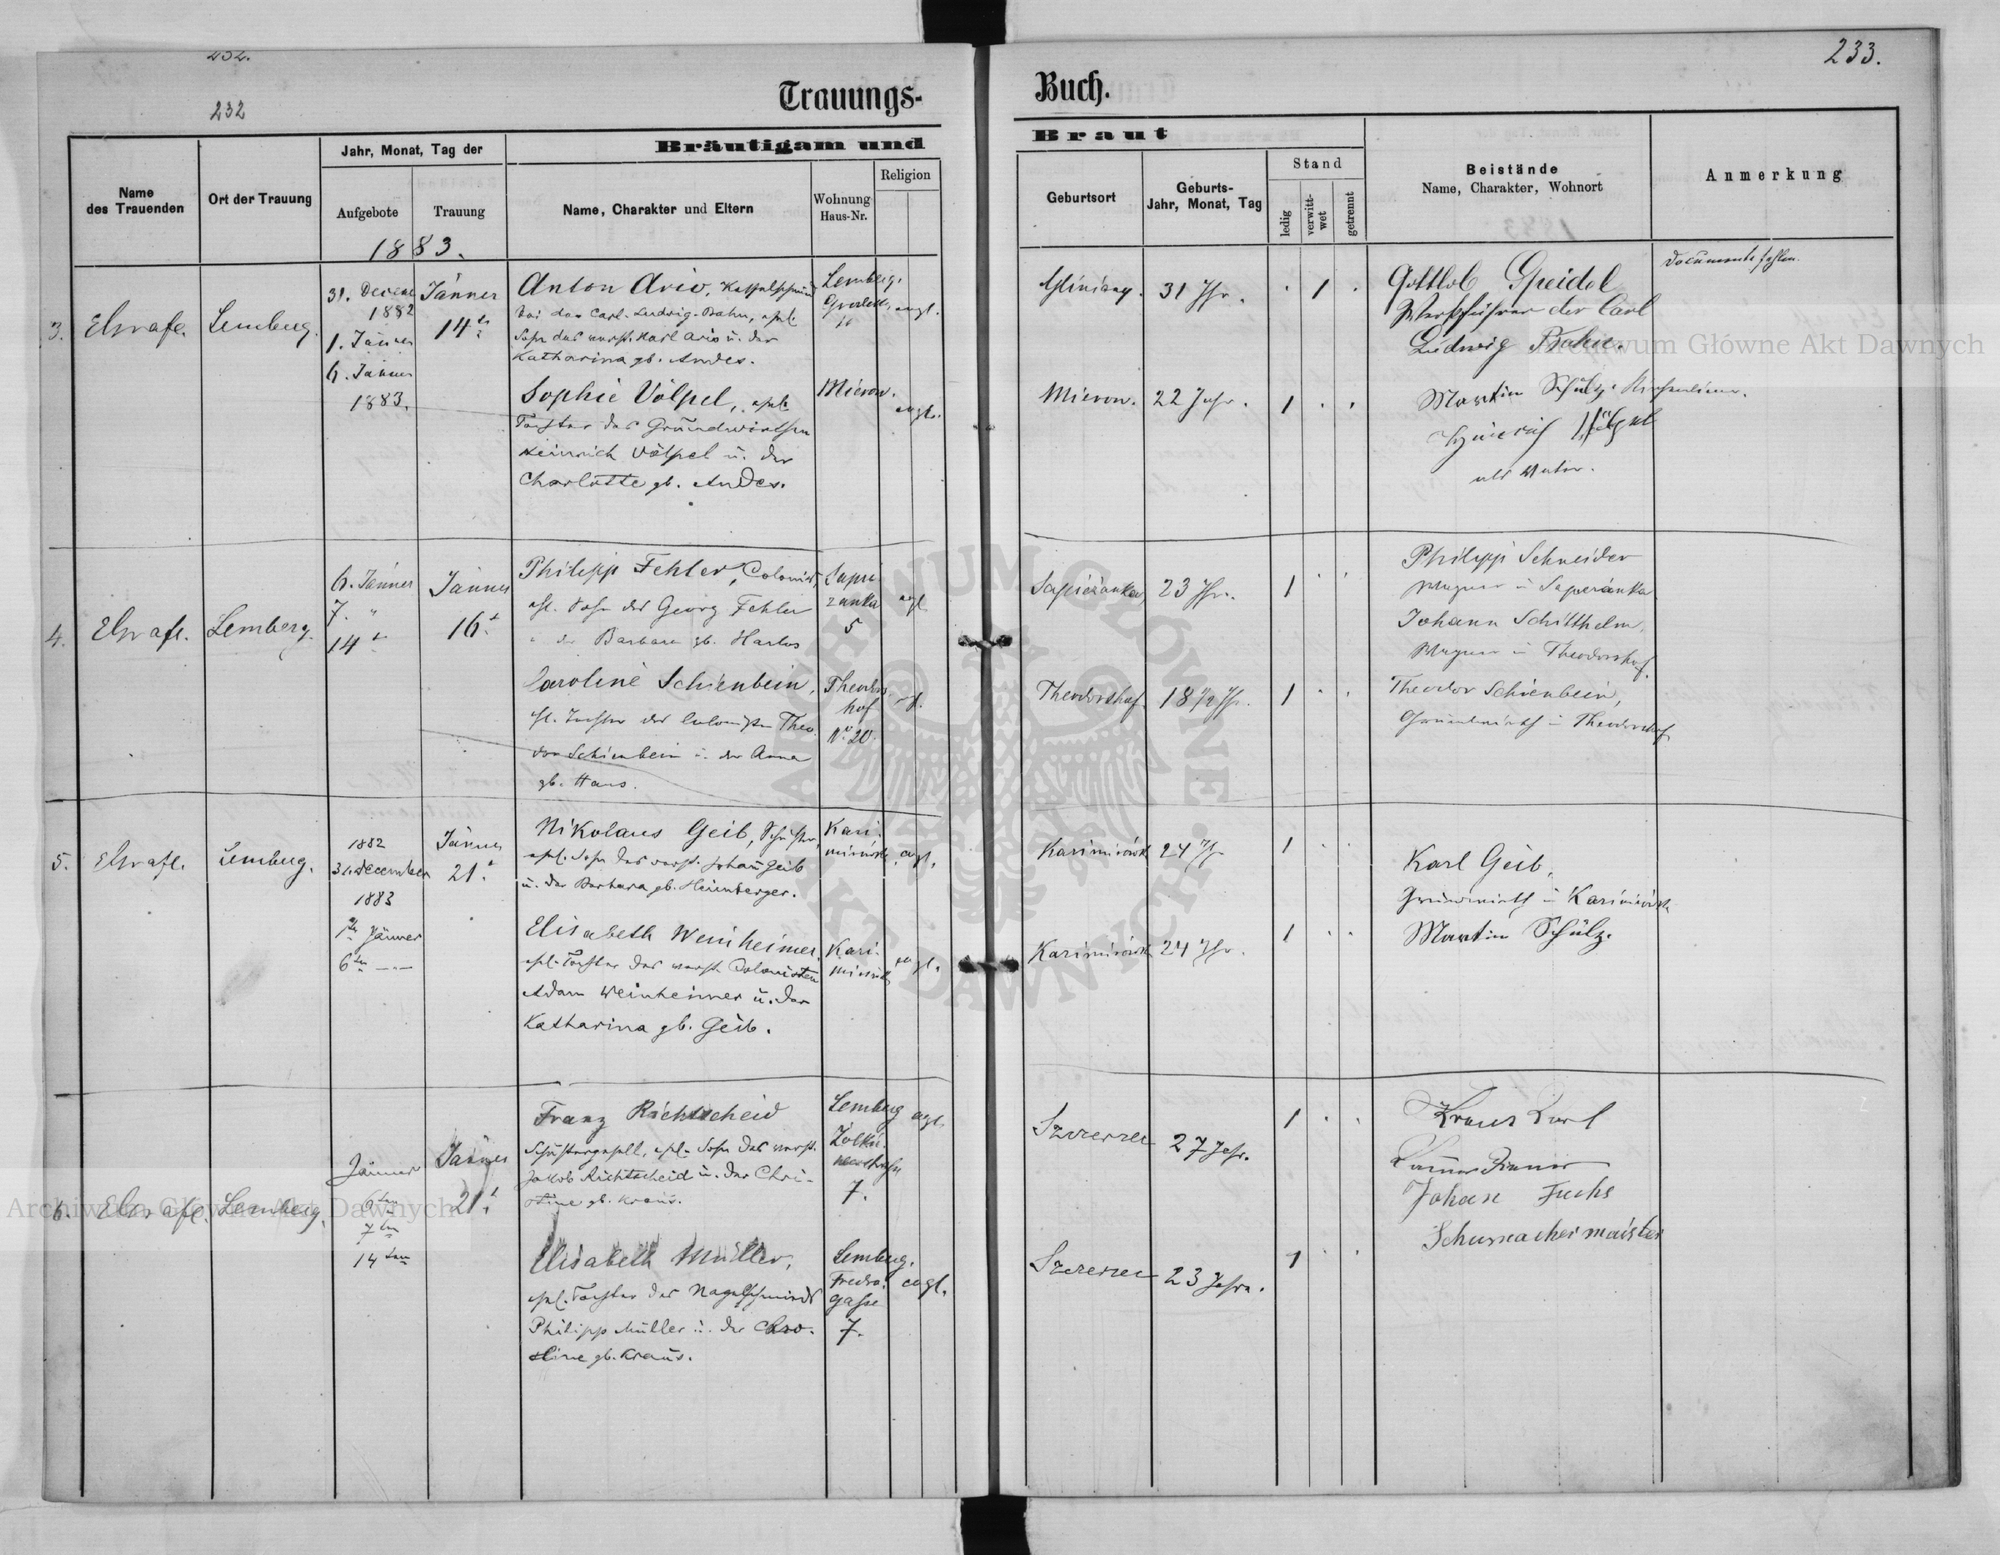 232.
232
Trauungs-
Bräutigam und
Name
des Trauenden
Ort der Trauung
Jahr, Monat, Tag der
Aufgebote
Trauung
Name, Charakter und Eltern
Wohnung
Haus-Nr.
Religion
1883.
3.
Lemberg.
31. Decem
1882
1. Jänner
6. Jänner
1883.
Jänner
14
Anton Ario,
bei der Carl-Ludwig-Bahn,
Sohn des verst. Karl Ario u. der
Katharina gb. Andes.
Lemberg.
evgl.
Sophie Völpel,
Tochter des Grundwirthen
Heinrich Völpel u. der
Charlotte gb. Andes.
Mierow.
evgl.
4.
Lemberg.
6. Jänner
7. "
14
Jänner
16.
Philipp Fehler, Colonist
ehl. Sohn des Georg Fehler
u. der Barbara gb. Harlos
Sapie
zanka
5
evgl.
Caroline Schienbein,
ehl. Tochter des Colonisten Theo
dor Schienbein u. der Anna
gb. Haus.
Theodors
hof
No 20.
5.
Lemberg.
1882
31. December
1883
Jänner
6ten
Jänner
21.
Nikolaus Geib, Schuster,
ehl. Sohn des verst. Johann Geib
u. der Barbara gb. Heimberger.
Kasi-
mirówka
evgl.
Elisabeth Weinheimer
ehl. Tochter des verst. Colonisten
Adam Weinheimer u. der
Katharina gb. Geib.
Kasi-
mirówka
evgl.
6.
Lemberg.
Jänner
6ten
7ten
14ten
Jänner
21.
Franz Richtscheid
Schustergesell, ehl. Sohn des verst.
Jakob Richtscheid u. der Chri-
stine gb. Kraus.
Lemberg
7.
evgl.
Elisabeth Müller,
ehl. Tochter des Nagelschmieds
Philipp Müller u. der
gb. Kraus.
Lemberg.
Fredro-
gasse
7.
evgl.
233.
Buch.
Braut
Geburtsort
Geburts-
Jahr, Monat, Tag
Stand
ledig
verwitt-
wet
getrennt
Beistände
Name, Charakter, Wohnort
Anmerkung
Gliniany.
31 Jhr.
1
Gottlob Speidel
Werkführer der Carl
Ludwig Bahn.
Documente fehlen.
Mierow.
22 Jahr.
1
Martin Schütz
Heinrich Völpel
als Vater.
Sapiezanka,
23 Jhr.
1
Philipp Schneider
Wagner in Sapiezanka
Johann Schitthelm,
Wagner in Theodorshof.
Theodorshof.
18 1/2 Jh.
1
Theodor Schienbein,
Grundwirth in Theodorshof
Kasimirówka
24 Jh.
1
Karl Geib,
Grundwirth in Kasimirówka
Kasimirówka
24 Jhr.
1
Martin Schütz.
Szczerzec
27 Jahr.
1
Kraus Karl
Johan Fuchs
Schumachermaister
Szczerzec
23 Jahre.
1
Archiwum Główne Akt Dawnych
ARCHIWUM GŁÓWNE AKT DAWNYCH
Archiwum Główne Akt Dawnych